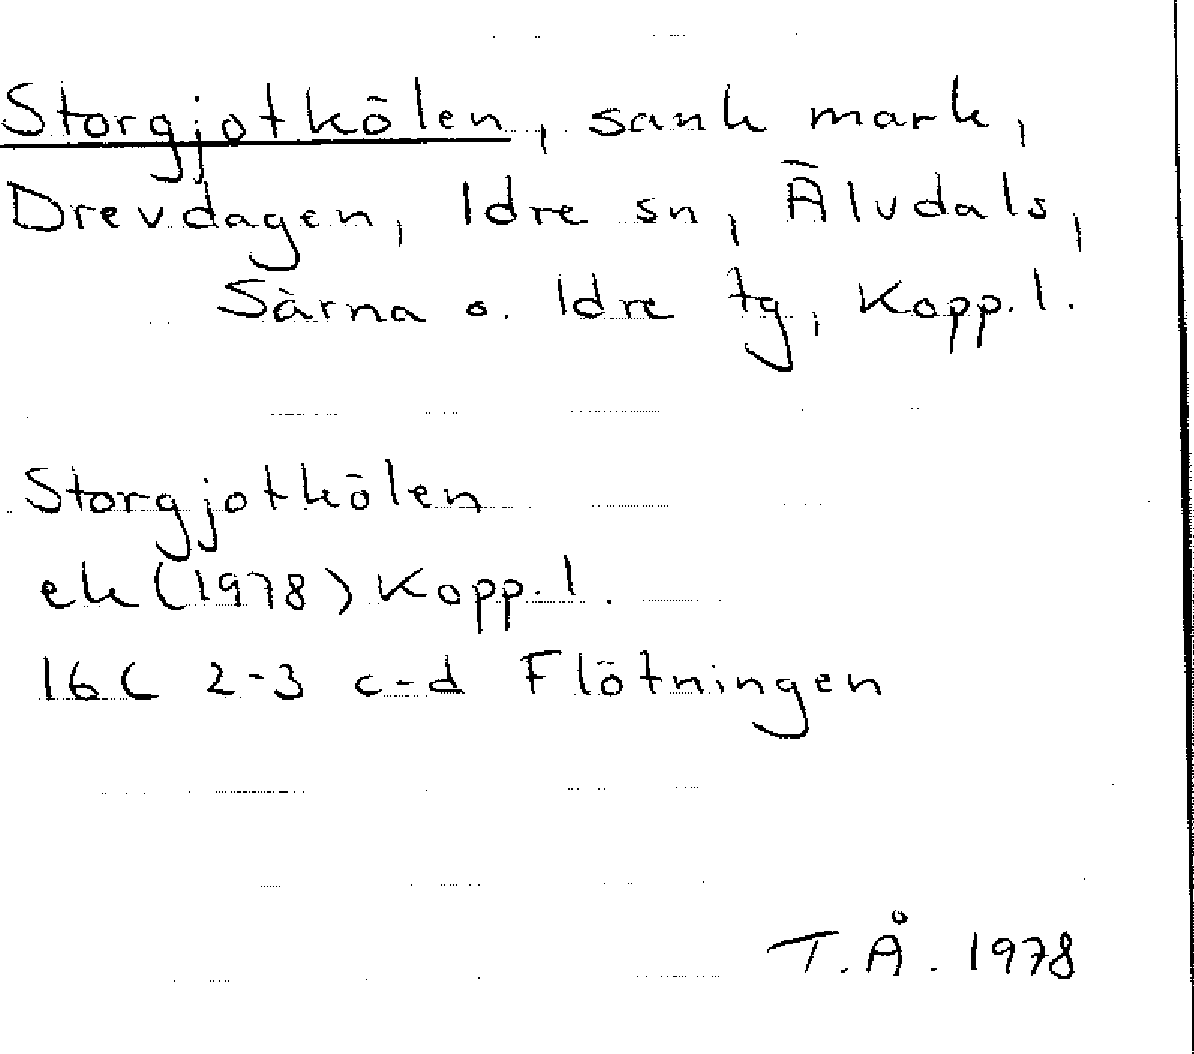 Storgjotkölen, sank mark,
Drevdagen, Idre sn, Älvdals,
Särna o. Idre tg, Kopp.l.
Storgjotkölen
ek (1978) Kopp.l.
16C 2-3 c-d Flötningen
T.Å. 1978